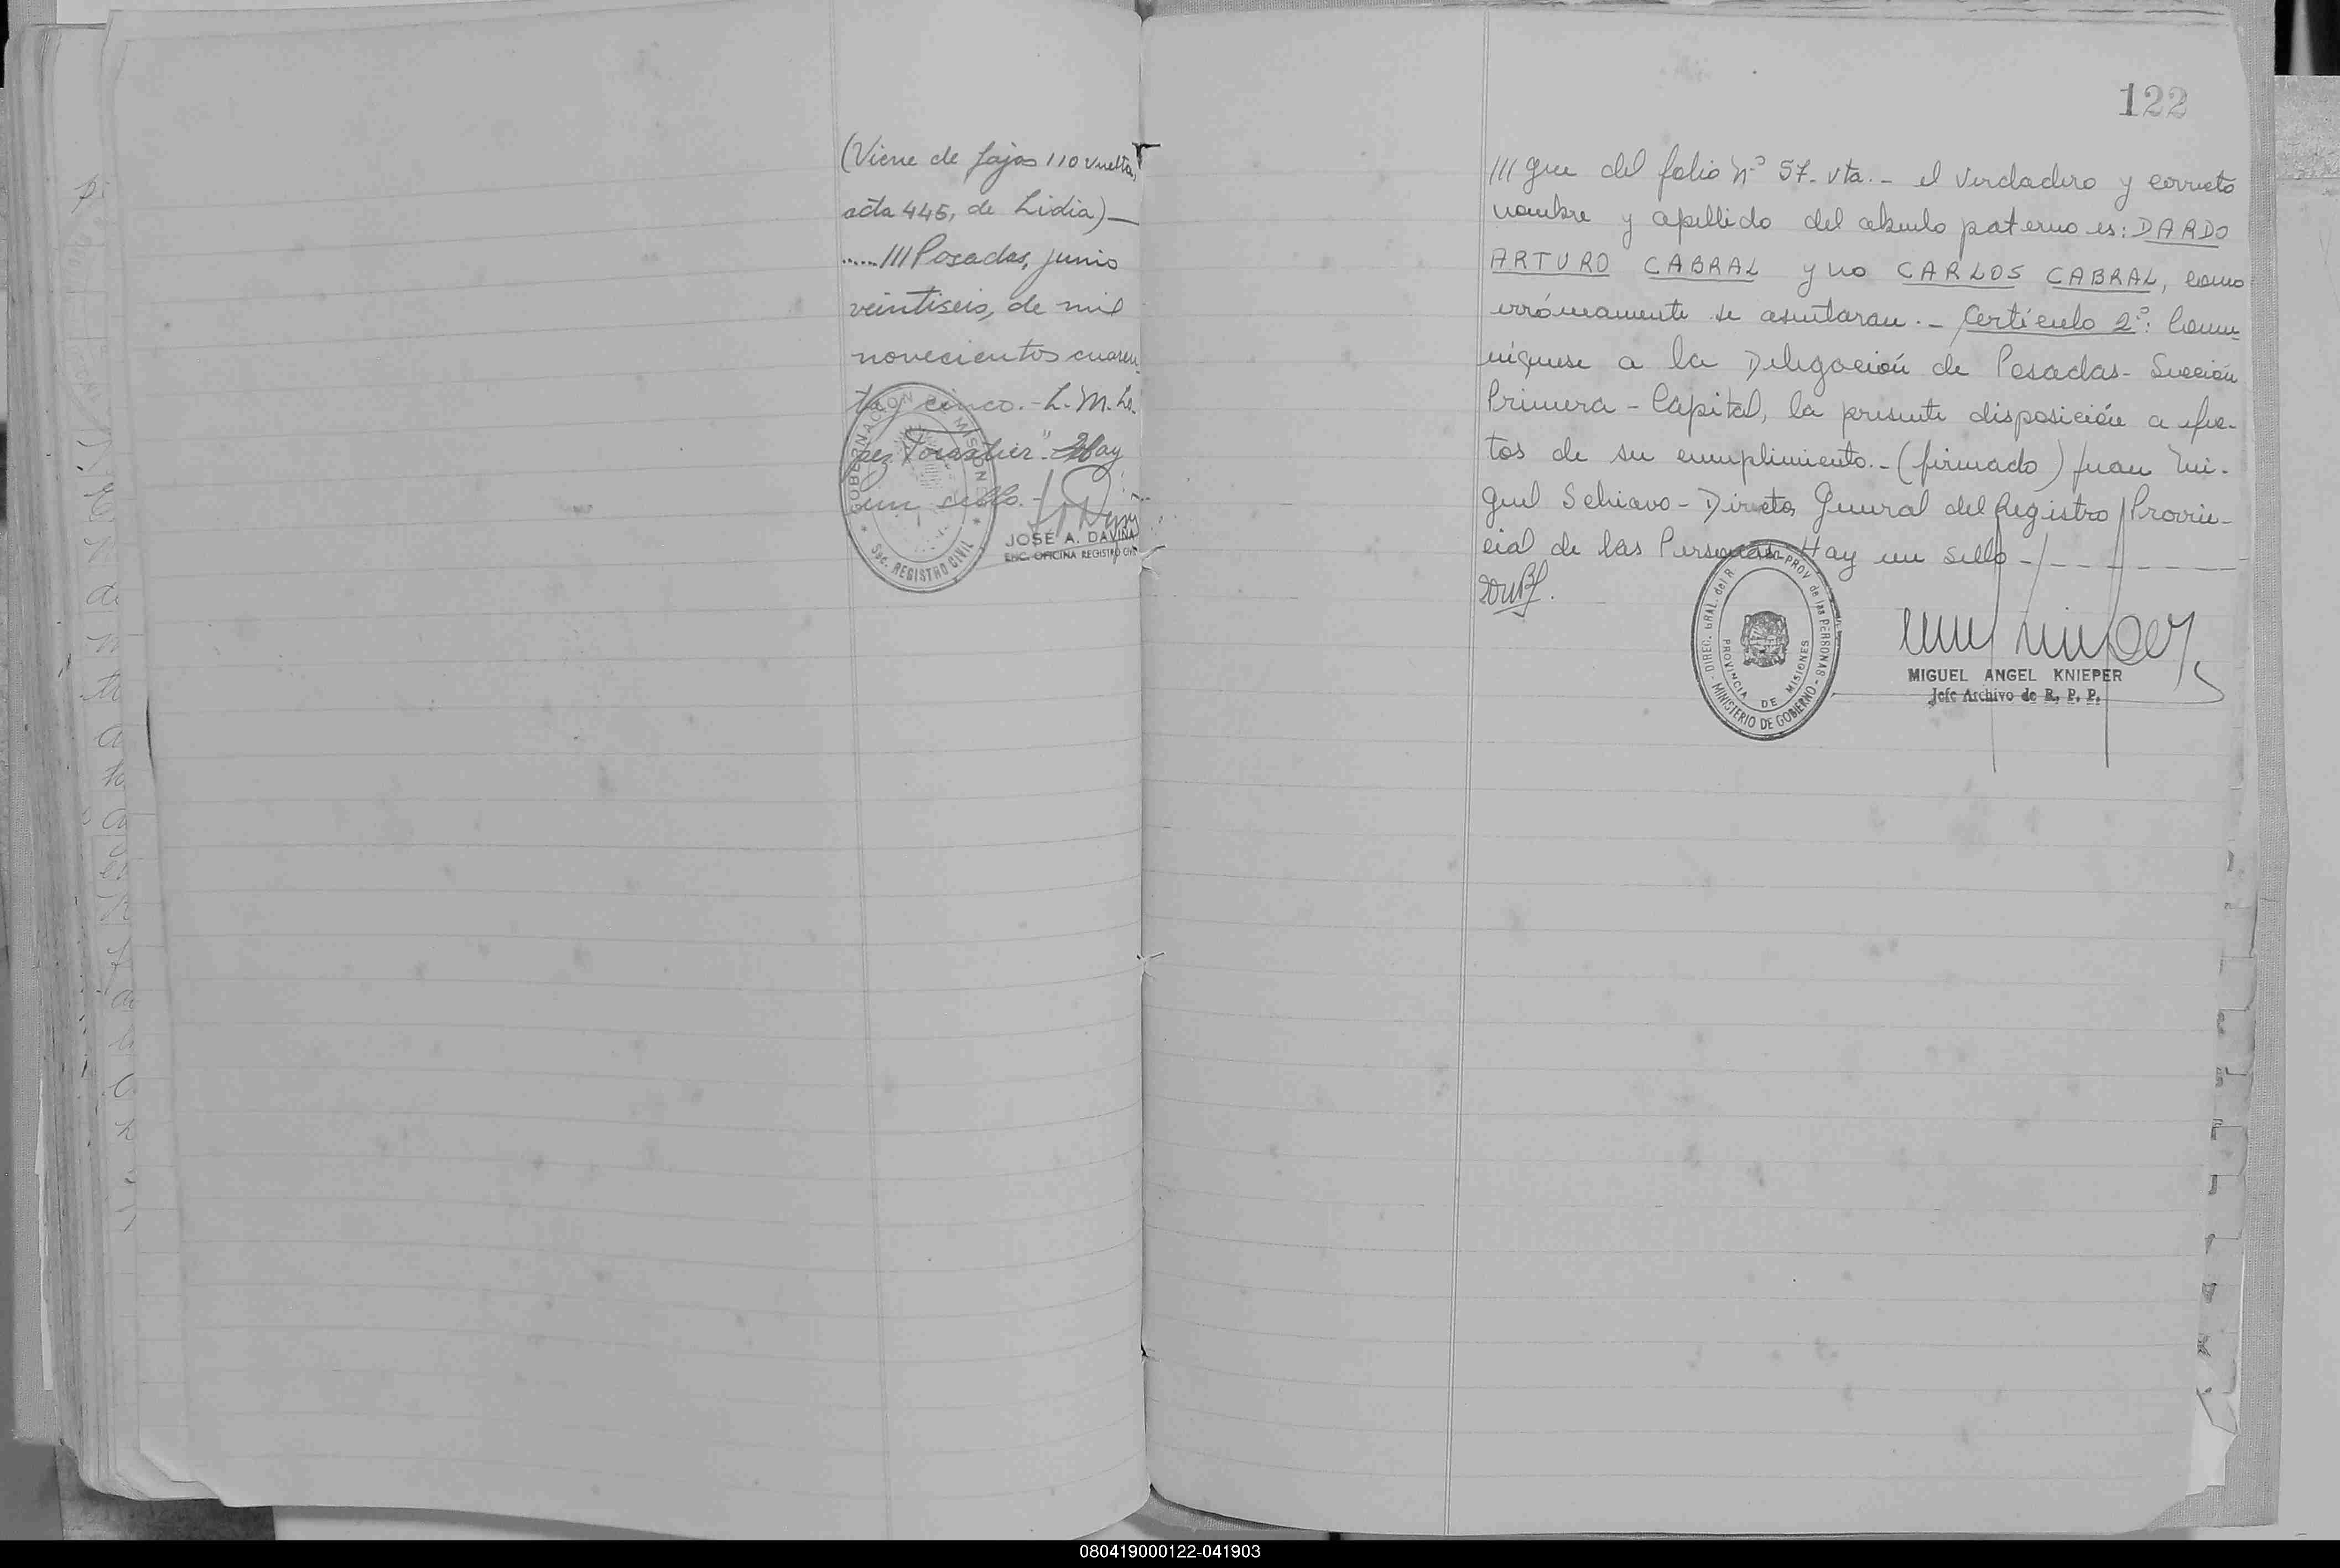 (Viene de fojas 110 vuelta,
acta 445, de Lidia)—
......///Posadas, junio
veintiseis, de mil
novecientos cuaren-
ta y cinco.- L. M. Lo-
pez Forastier". Hay
un sello.-
GOBERNACION MISIONES
Sec. REGISTRO CIVIL
JOSÉ A. DAVIÑA
ENC. OFICINA REGISTRO CIVIL
122
/// que del folio Nº 57- vta.- el verdadero y correcto
nombre y apellido del abuelo paterno es: DARDO
ARTURO CABRAL y no CARLOS CABRAL, como
erróneamente se asentaran.- Artículo 2º: Comu-
níquese a la Delegación de Posadas- Sección
Primera - Capital, la presente disposición a efec-
tos de su cumplimiento.- (firmado) Juan Mi-
guel Schiavo - Director General del Registro Provin-
cial de las Personas. Hay un sello -/- - - - - - -
DIREC. GRAL. del R. PROV de las PERSONAS - MINISTERIO DE GOBIERNO -
PROVINCIA DE MISIONES
MIGUEL ANGEL KNIEPER
Jefe Archivo de R. P. P.
080419000122-041903